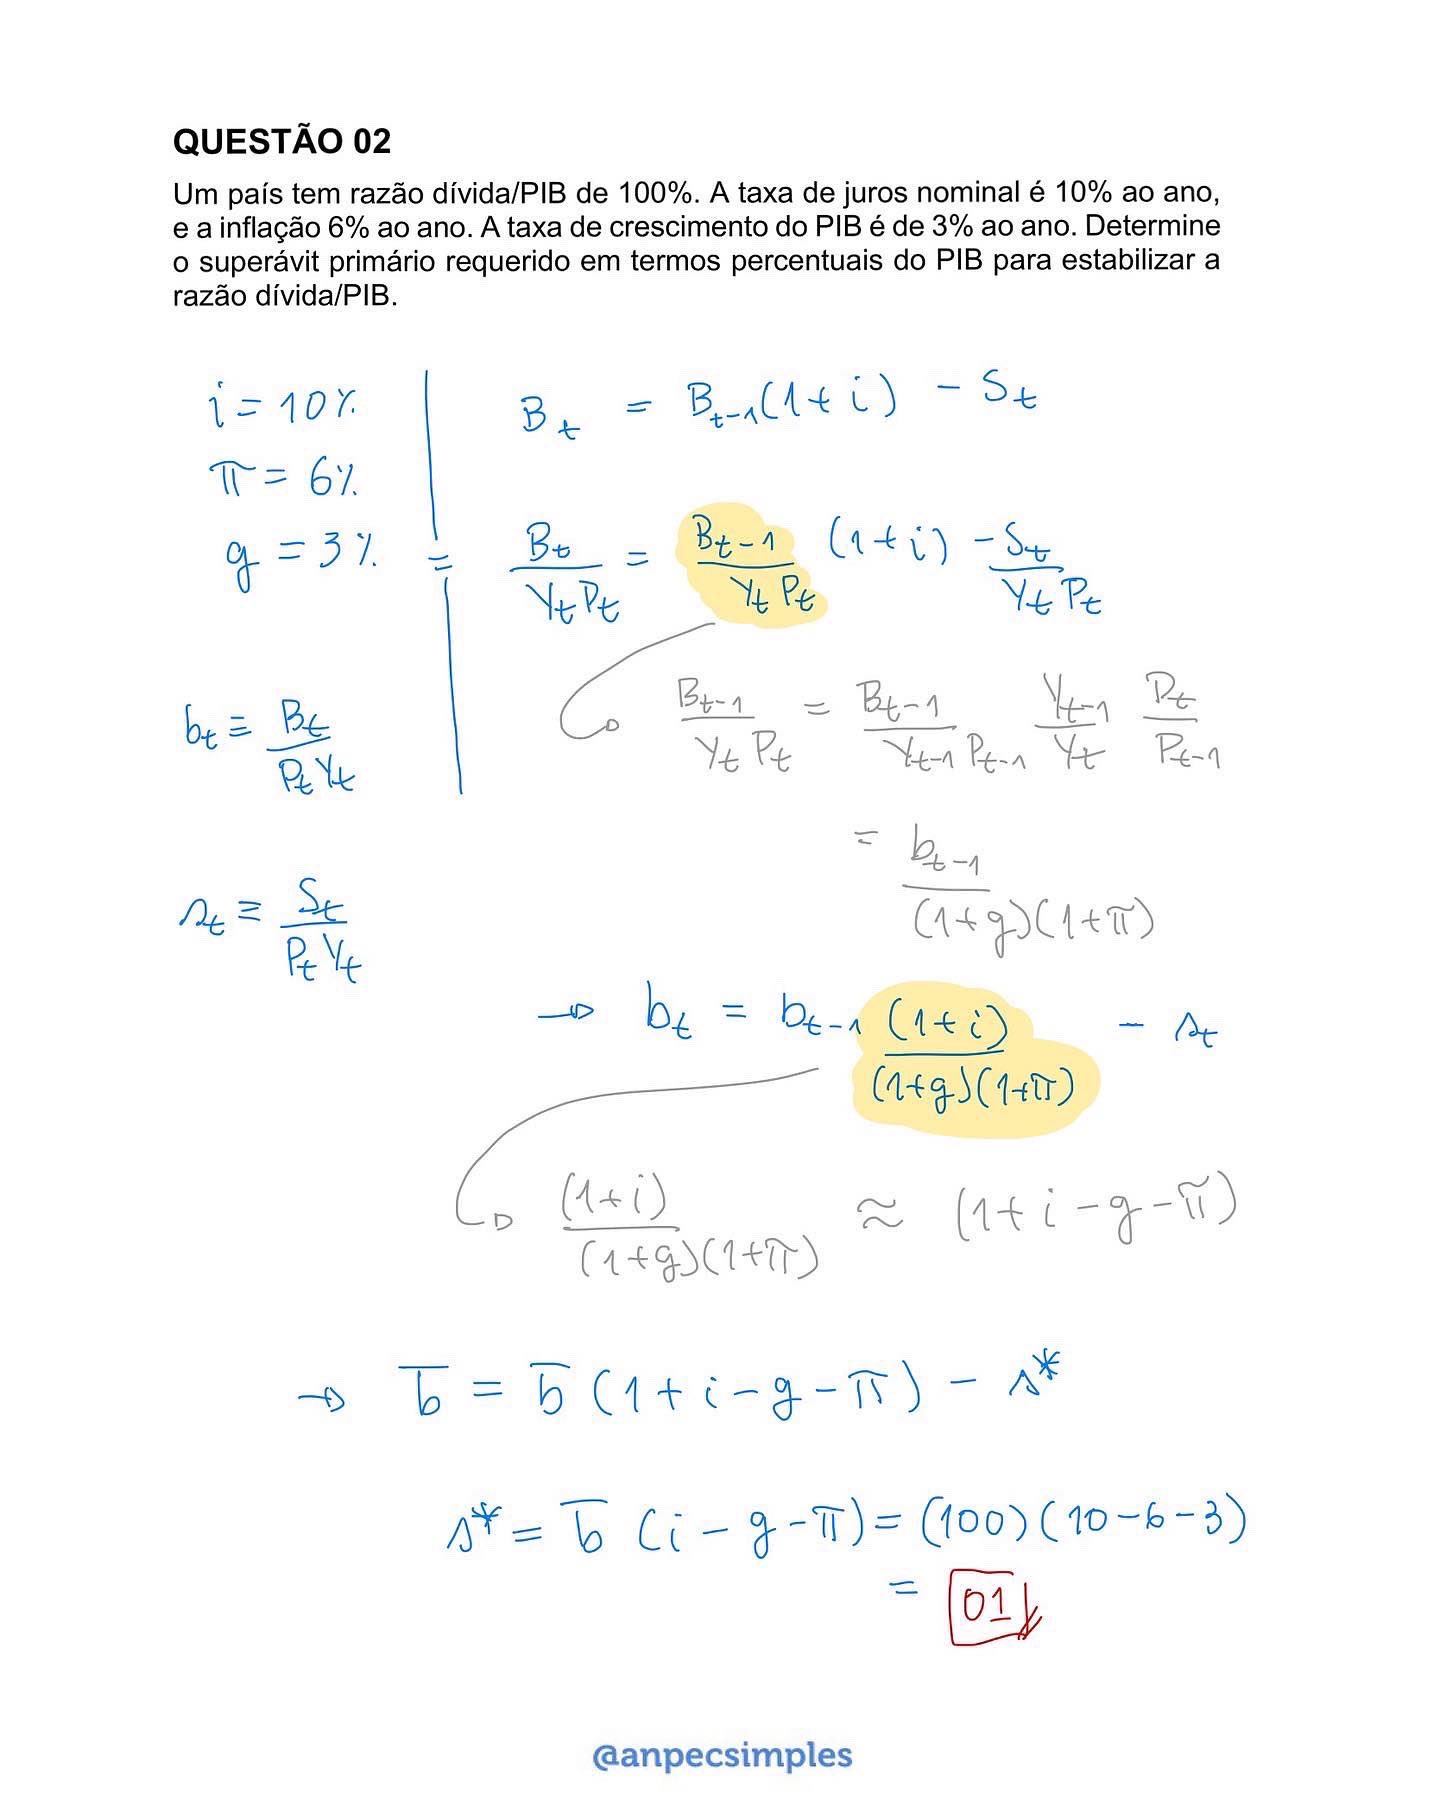 QUESTÃO 02
Um país tem razão dívida/PIB de 100%. A taxa de juros nominal é 10% ao ano,
e a inflação 6% ao ano. A taxa de crescimento do PIB é de 3% ao ano. Determine
o superávit primário requerido em termos percentuais do PIB para estabilizar a
razão dívida/PIB.
i = 10%
π = 6%
g = 3%
b_t ≡ B_t / (P_t Y_t)
s_t ≡ S_t / (P_t Y_t)
B_t = B_{t-1}(1+i) - S_t
= B_t / (Y_t P_t) = B_{t-1} / (Y_t P_t) (1+i) - S_t / (Y_t P_t)
B_{t-1} / (Y_t P_t) = B_{t-1} / (Y_{t-1} P_{t-1}) Y_{t-1} / Y_t P_t / P_{t-1}
= b_{t-1} / (1+g)(1+π)
→ b_t = b_{t-1} (1+i) / (1+g)(1+π) - s_t
(1+i) / (1+g)(1+π) ≈ (1+i-g-π)
→ b̅ = b̅ (1+i-g-π) - s*
s* = b̅ (i-g-π) = (100)(10-6-3)
= 01
@anpecsimples